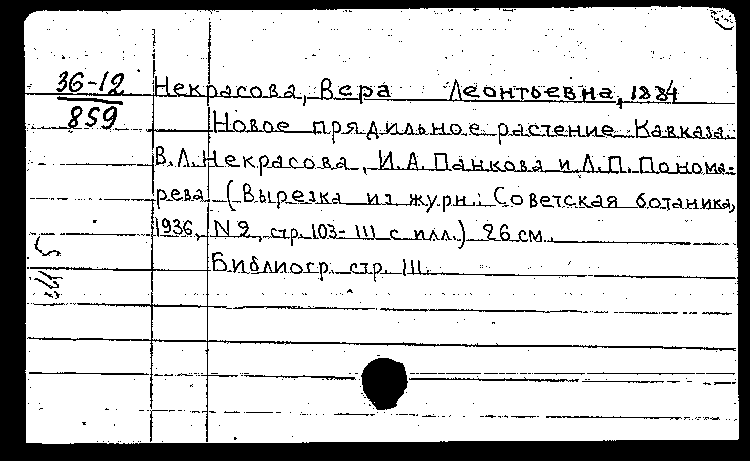 36-12
859
Некрасова, Вера Леонтьевна, 1884
Новое прядильное растение Кавказа.
В.Л. Некрасова, И.А. Панкова и Л.П. Понома-
рева (Вырезка из журн.: Советская ботаника,
1936, N 2, стр. 103-111 с илл.) 26 см.
Библиогр. стр. 111.